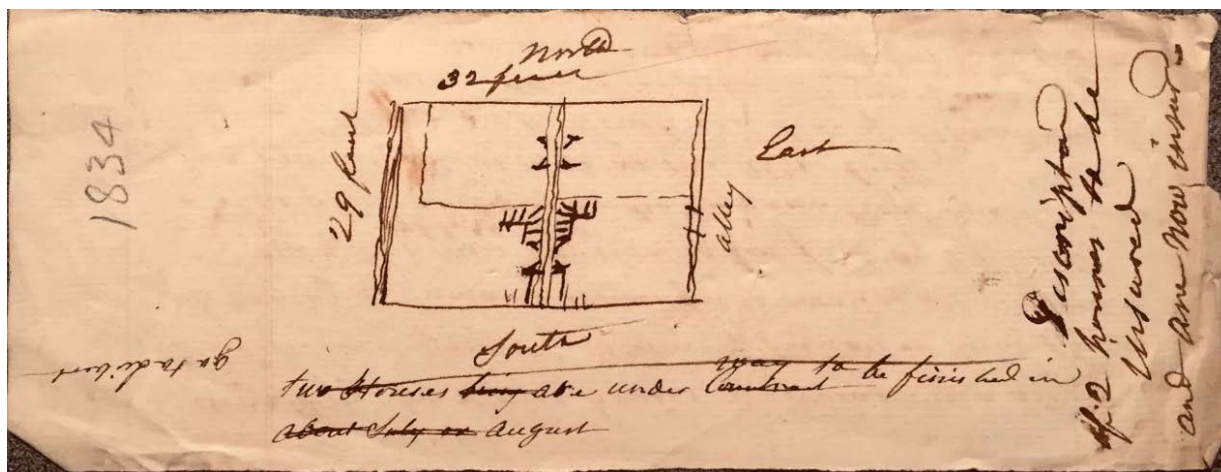 North
32 feet
1834
29 feet
East
alley
South
two Houses being are under Contract way to be finished in
about July or august
Description
of 2 houses to be
Insured
and are now insured